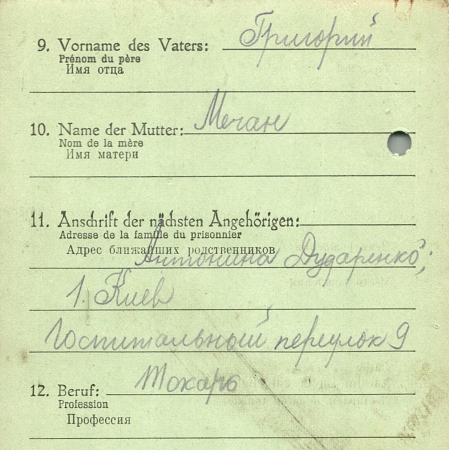 9. Vorname des Vaters: Григорий
Prénom du père
Имя отца
10. Name der Mutter: Мечан
Nom de la mère
Имя матери
11. Anschrift der nächsten Angehörigen:
Adresse de la famille du prisonnier
Адрес ближайших родственников
Антонина Дударенко,
г. Киев
Госпитальный переулок 9
12. Beruf: Токарь
Profession
Профессия